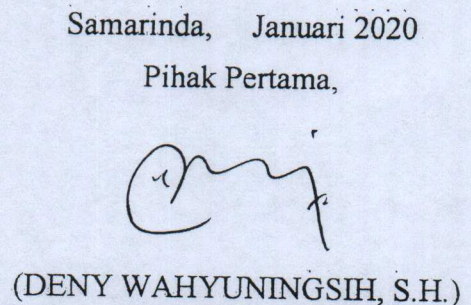 Samarinda, Januari 2020
Pihak Pertama,
(DENY WAHYUNINGSIH, S.H.)